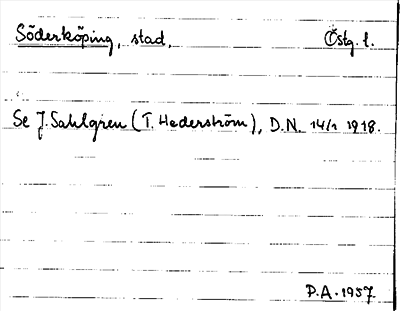 Söderköping, stad, Östg. l.
Se J. Sahlgren (T. Hederström), D.N. 14/1 1918.
P.A. 1957